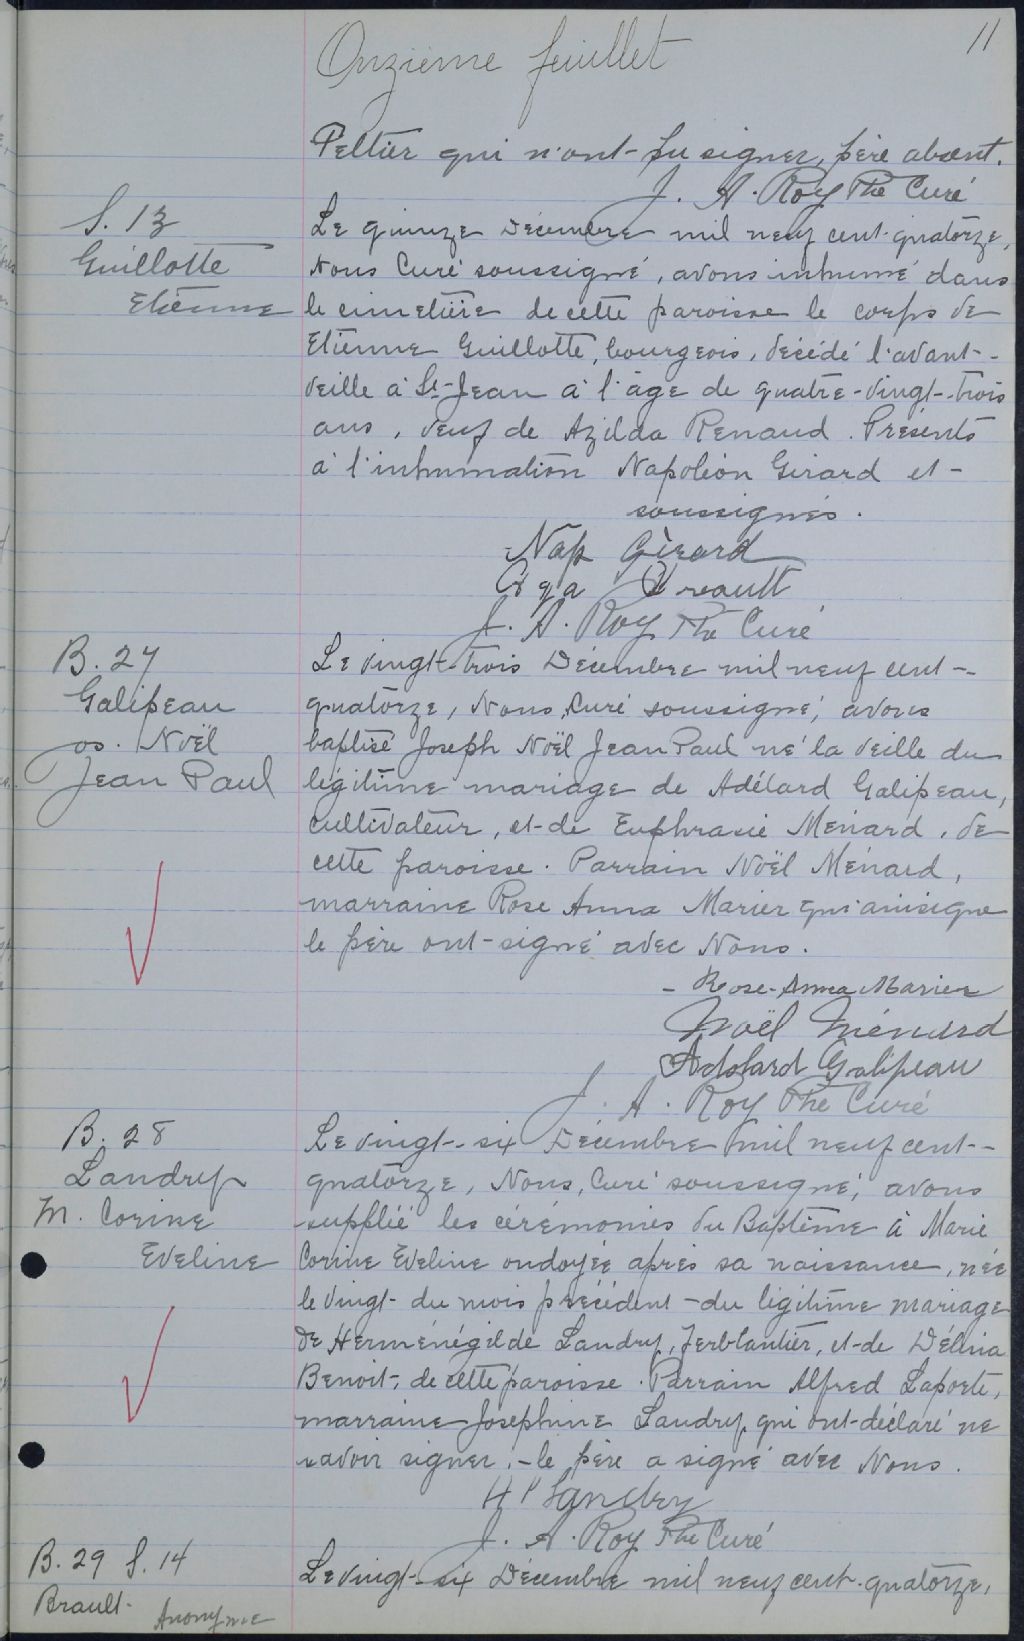 Onzième feuillet
11
Peltier qui n'ont pu signer, père absent.
J. A. Roy Ptre Curé
S. 13
Guillotte
Etienne
Le quinze Décembre mil neuf cent quatorze,
Nous Curé soussigné, avons inhumé dans
le cimetière de cette paroisse le corps de
Etienne Guillotte, bourgeois, décédé l'avant-
veille à St-Jean à l'âge de quatre-vingt-trois
ans, veuf de Azilda Renaud. Présents
à l'inhumation Napoléon Girard et
soussignés.
Nap Girard
J. A. Roy Ptre Curé
B. 27
Galipeau
os. Noël
Jean Paul
Le vingt-trois Décembre mil neuf cent-
quatorze, Nous, Curé soussigné, avons
baptisé Joseph Noël Jean Paul né la veille du
légitime mariage de Adélard Galipeau,
cultivateur, et de Euphrasie Ménard, de
cette paroisse. Parrain Noël Ménard,
marraine Rose Anna Marier qui ainsi que
le père ont signé avec Nous.
Rose-Anna Marier
Noël Ménard
Adélard Galipeau
J. A. Roy Ptre Curé
B. 28
Landry
M. Corine
Eveline
Le vingt-six Décembre mil neuf cent-
quatorze, Nous, Curé soussigné, avons
suppléé les cérémonies du Baptême à Marie
Corine Eveline ondoyée après sa naissance, née
le vingt du mois précédent du légitime mariage
de Herménégilde Landry, ferblantier, et de Délina
Benoit, de cette paroisse. Parrain Alfred Laporte,
marraine Josephine Landry qui ont déclaré ne
savoir signer, le père a signé avec Nous.
Hl Landry
J. A. Roy Ptre Curé
B. 29 S. 14
Brault
Anonyme
Le vingt-six Décembre mil neuf cent quatorze,